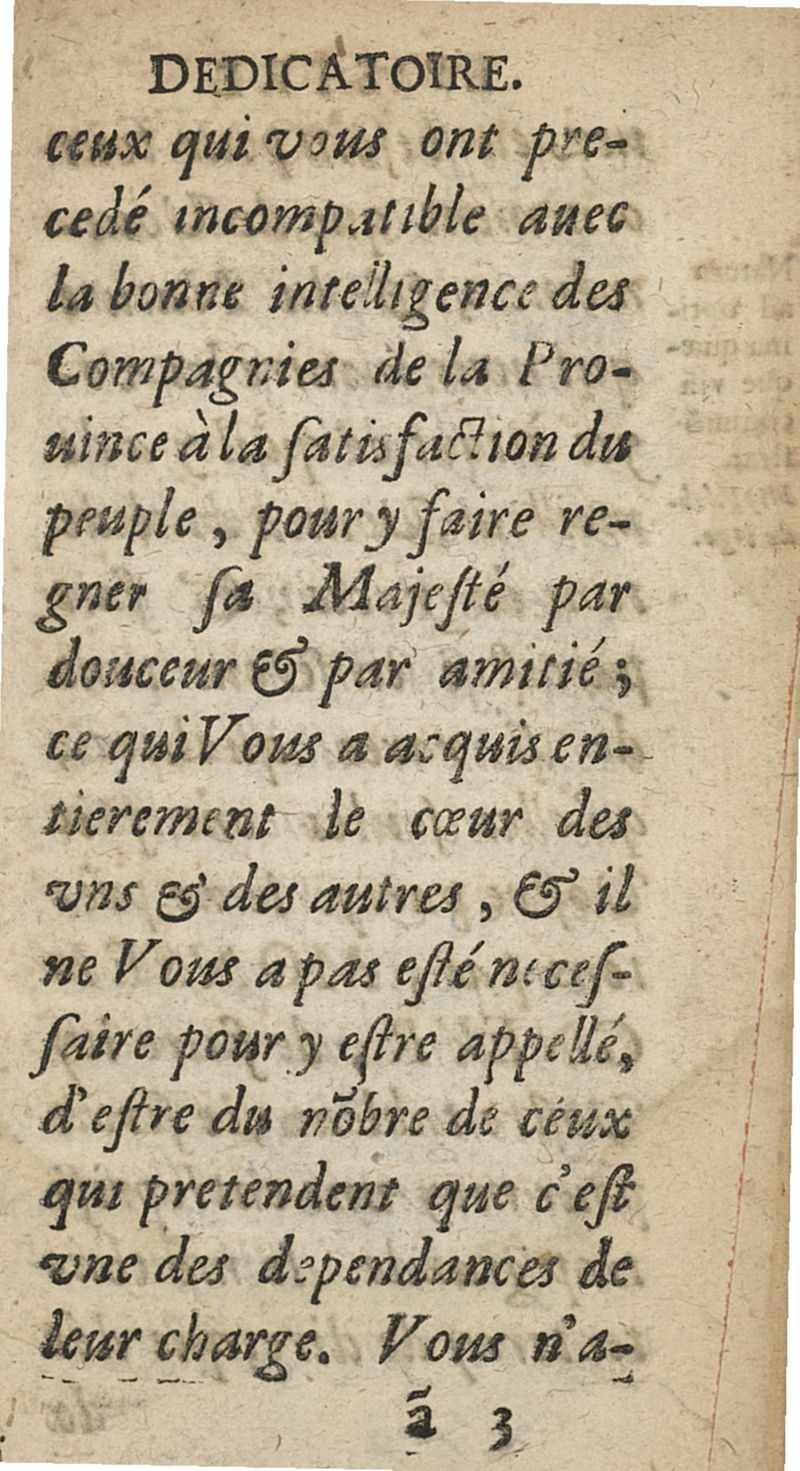 DEDICATOIRE.
ceux qui vous ont pre-
cedé incompatible auec
la bonne intelligence des
Compagnies de la Pro-
uince à la ſatisfaction du
peuple, pour y faire re-
gner ſa Majeſté par
douceur & par amitié;
ce qui Vous a acquis en-
tierement le cœur des
vns & des autres, & il
ne Vous a pas eſté neceſ-
ſaire pour y eſtre appellé,
d'eſtre du nõbre de ceux
qui pretendent que c'eſt
vne des dependances de
leur charge. Vous n'a-
ã 3